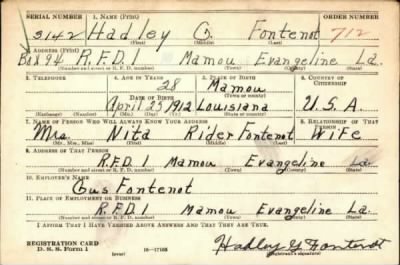 SERIAL NUMBER 1. NAME (Print) ORDER NUMBER
3142 Hadley G. Fontenot 712
(First) (Middle) (Last)
2. ADDRESS (Print)
Box 94 R.F.D. 1 Mamou Evangeline La.
(Number and street or R. F. D. number) (Town) (County) (State)
3. TELEPHONE 4. AGE IN YEARS 5. PLACE OF BIRTH 6. COUNTRY OF CITIZENSHIP
28 Mamou
(Town or county)
DATE OF BIRTH
April 23 1912 Louisiana U.S.A.
(Exchange) (Number) (Mo.) (Day) (Yr.) (State or country)
7. NAME OF PERSON WHO WILL ALWAYS KNOW YOUR ADDRESS 8. RELATIONSHIP OF THAT PERSON
Mrs. Nita Rider Fontenot Wife
(Mr., Mrs., Miss) (First) (Middle) (Last)
9. ADDRESS OF THAT PERSON
R.F.D. 1 Mamou Evangeline La.
(Number and street or R. F. D. number) (Town) (County) (State)
10. EMPLOYER'S NAME
Gus Fontenot
11. PLACE OF EMPLOYMENT OR BUSINESS
R.F.D. 1 Mamou Evangeline La.
(Number and street or R. F. D. number) (Town) (County) (State)
I AFFIRM THAT I HAVE VERIFIED ABOVE ANSWERS AND THAT THEY ARE TRUE.
REGISTRATION CARD
D. S. S. Form 1 (over) 16-17105 Hadley G Fontenot
(Registrant's signature)